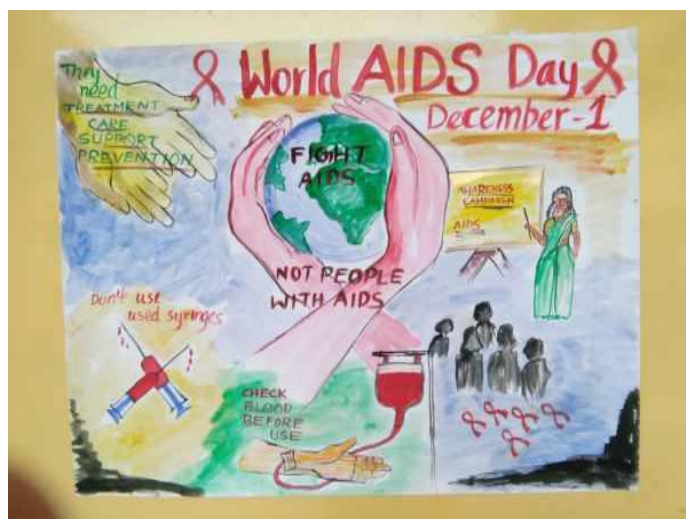 World AIDS Day
December-1
They
need
TREATMENT
CARE
SUPPORT
PREVENTION
FIGHT
AIDS
NOT PEOPLE
WITH AIDS
AWARENESS
CAMPAIGN
AIDS
Don't use
used syringes
CHECK
BLOOD
BEFORE
USE